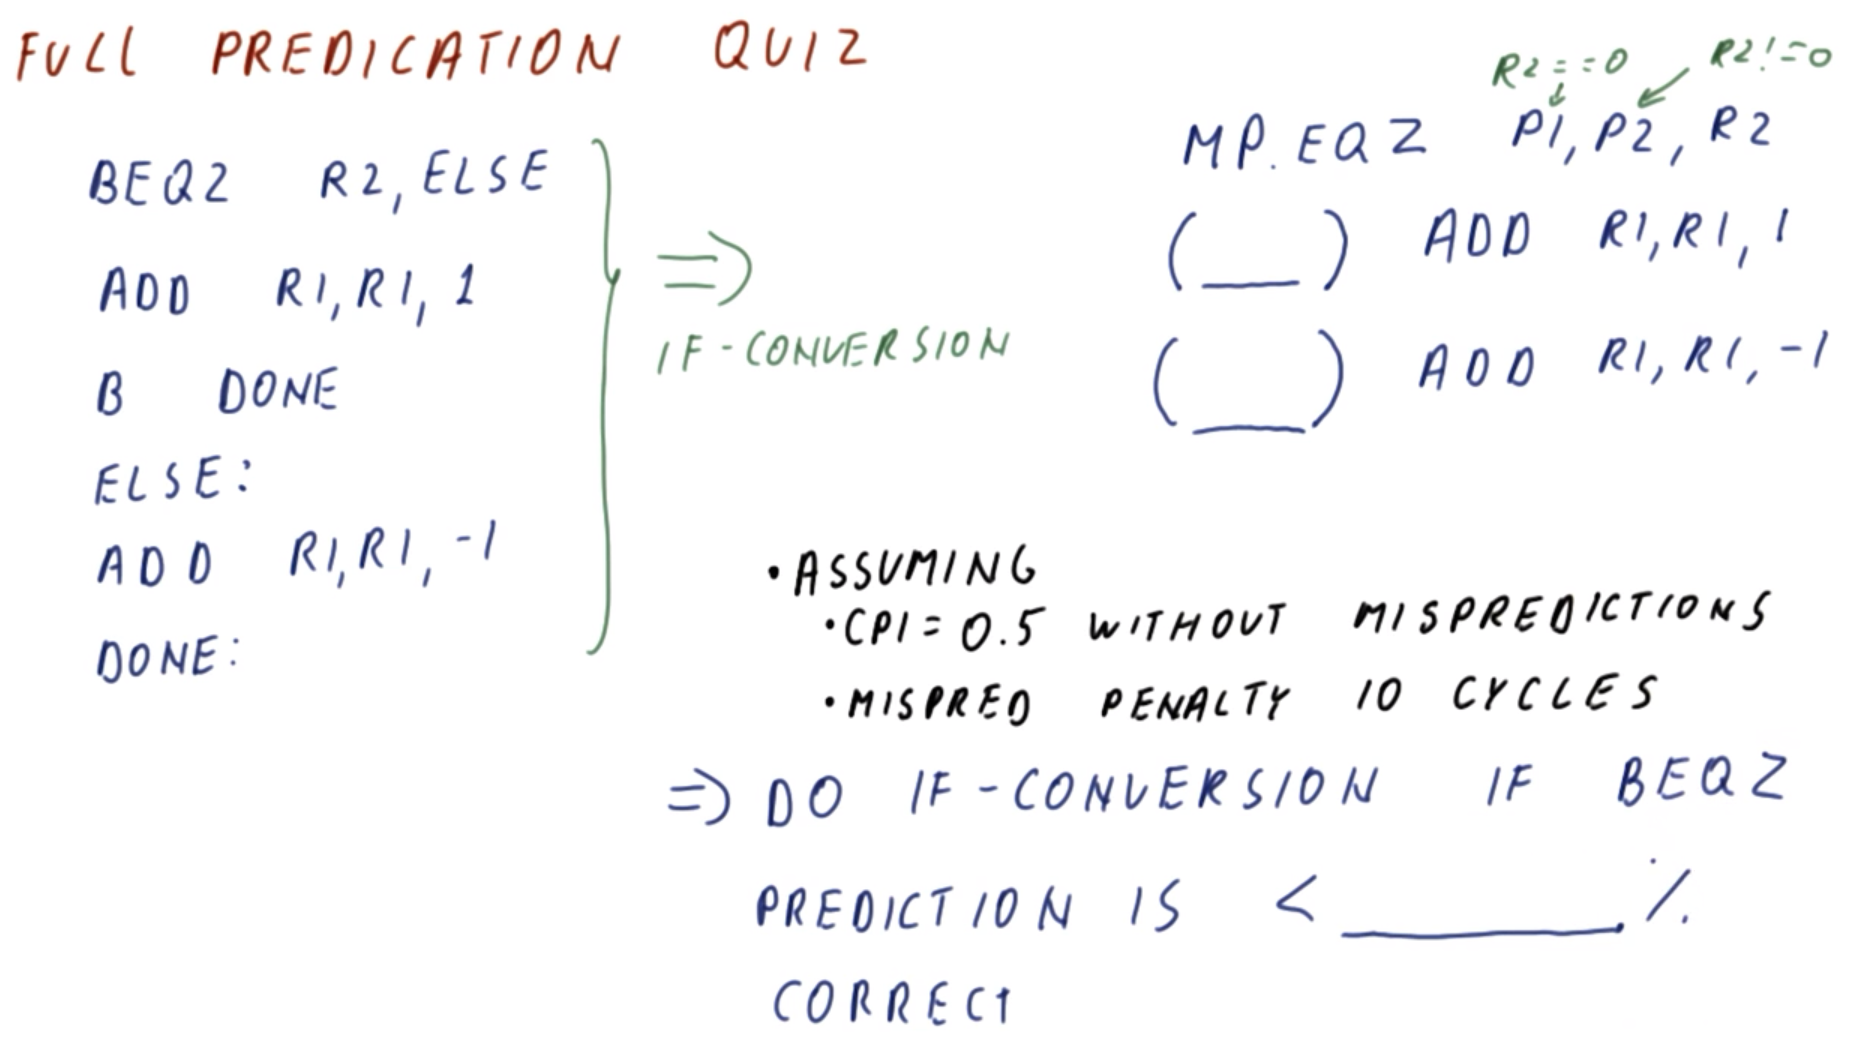 FULL PREDICATION QUIZ
BEQZ R2, ELSE
ADD R1, R1, 1
B DONE
ELSE:
ADD R1, R1, -1
DONE:
⇒
IF-CONVERSION
R2==0 R2!=0
MP.EQZ P1, P2, R2
(__) ADD R1, R1, 1
(__) ADD R1, R1, -1
• ASSUMING
• CPI = 0.5 WITHOUT MISPREDICTIONS
• MISPRED PENALTY 10 CYCLES
⇒ DO IF-CONVERSION IF BEQZ
PREDICTION IS < ______.%
CORRECT